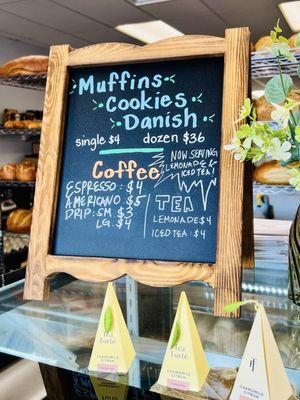 Muffins
Cookies
Danish
single $4 dozen $36
Coffee
ESPRESSO: $4
AMERICANO $5
DRIP: SM $3
LG. $4
NOW SERVING
LEMONADE &
ICED TEA!
TEA
LEMONADE $4
ICED TEA: $4
tea
forté
CHAMOMILE
CITRON
tea
forté
CHAMOMILE
CITRON